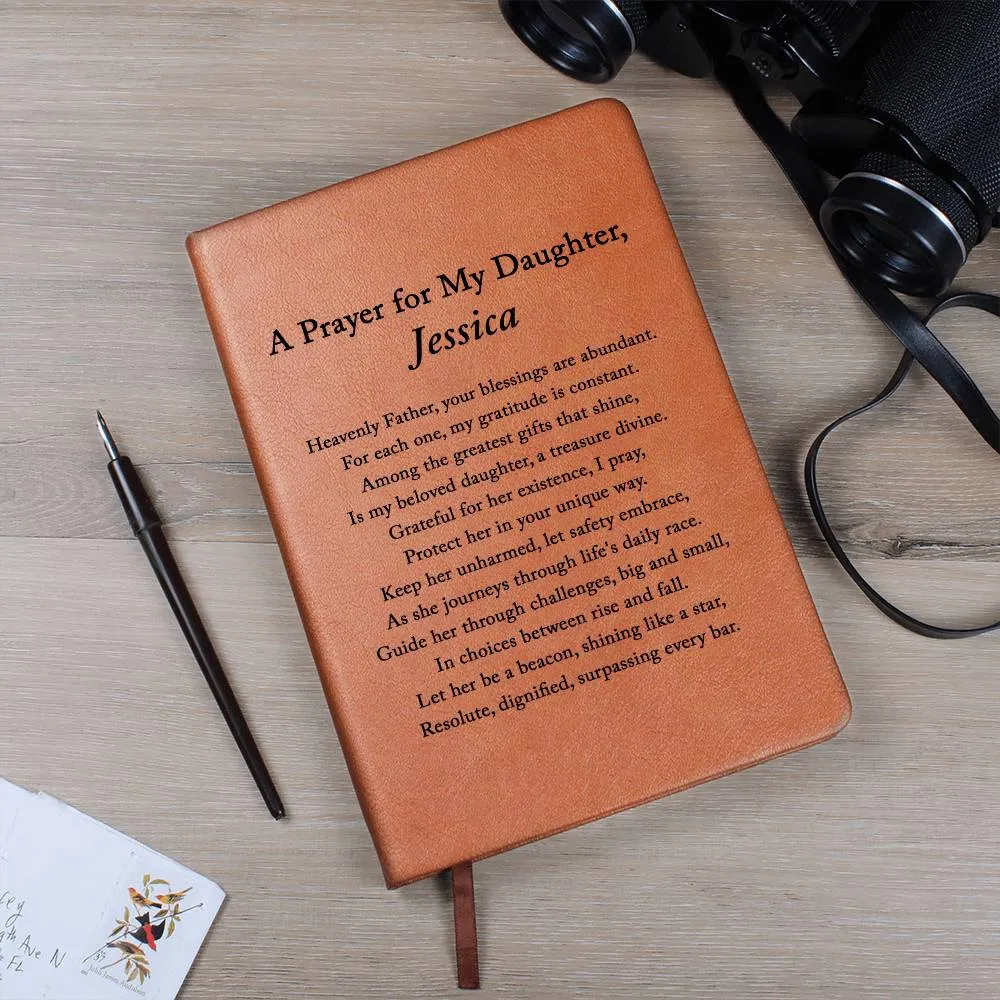 A Prayer for My Daughter,
Jessica
Heavenly Father, your blessings are abundant.
For each one, my gratitude is constant.
Among the greatest gifts that shine,
Is my beloved daughter, a treasure divine.
Grateful for her existence, I pray,
Protect her in your unique way.
Keep her unharmed, let safety embrace,
As she journeys through life's daily race.
Guide her through challenges, big and small,
In choices between rise and fall.
Let her be a beacon, shining like a star,
Resolute, dignified, surpassing every bar.
Ave N
FL
37
John James Audubon